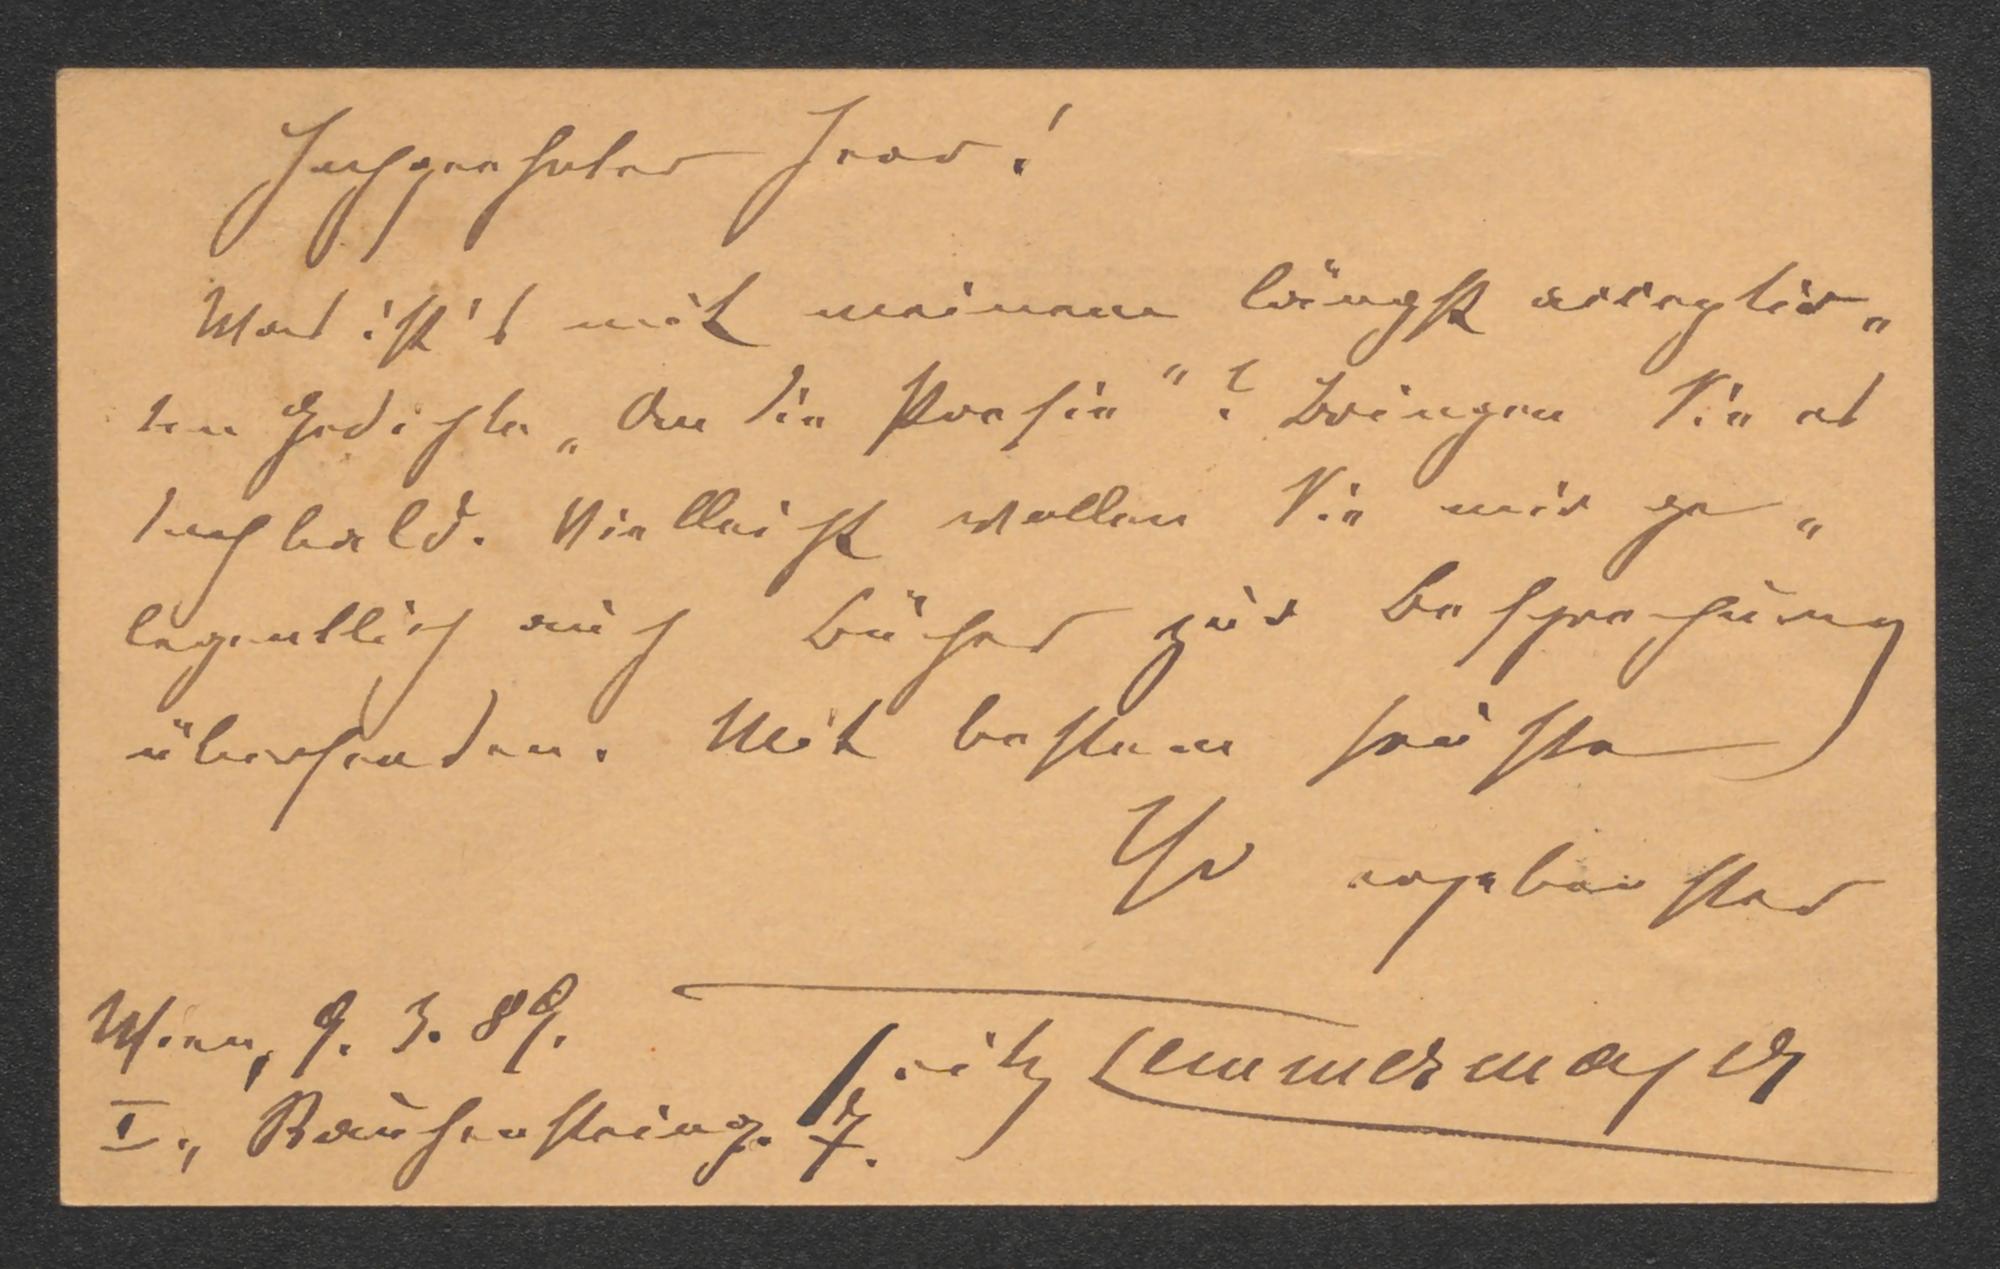 Hochgeehrter Herr!
Was ist's mit meinem längst acceptir„
ten Gedichte „An die Poesie“? Bringen Sie es
doch bald. Vielleicht wollen Sie mir ge„
legentlich auch Bücher zur Besprechung
übersenden. Mit bestem Gruße
Ihr ergebenster
Wien, 9. 3. 89.
Fritz Lemmermayer
I., Rauhensteing. 7.